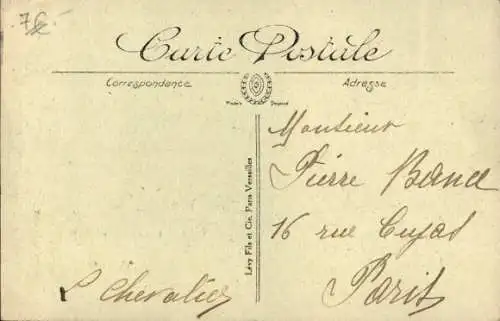 7€
Carte Postale
Correspondance
Adresse
Modèle Déposé
Lévy Fils et Cie, Paris-Versailles
Monsieur
Pierre
16 rue Cujas
Paris
L Chevalier